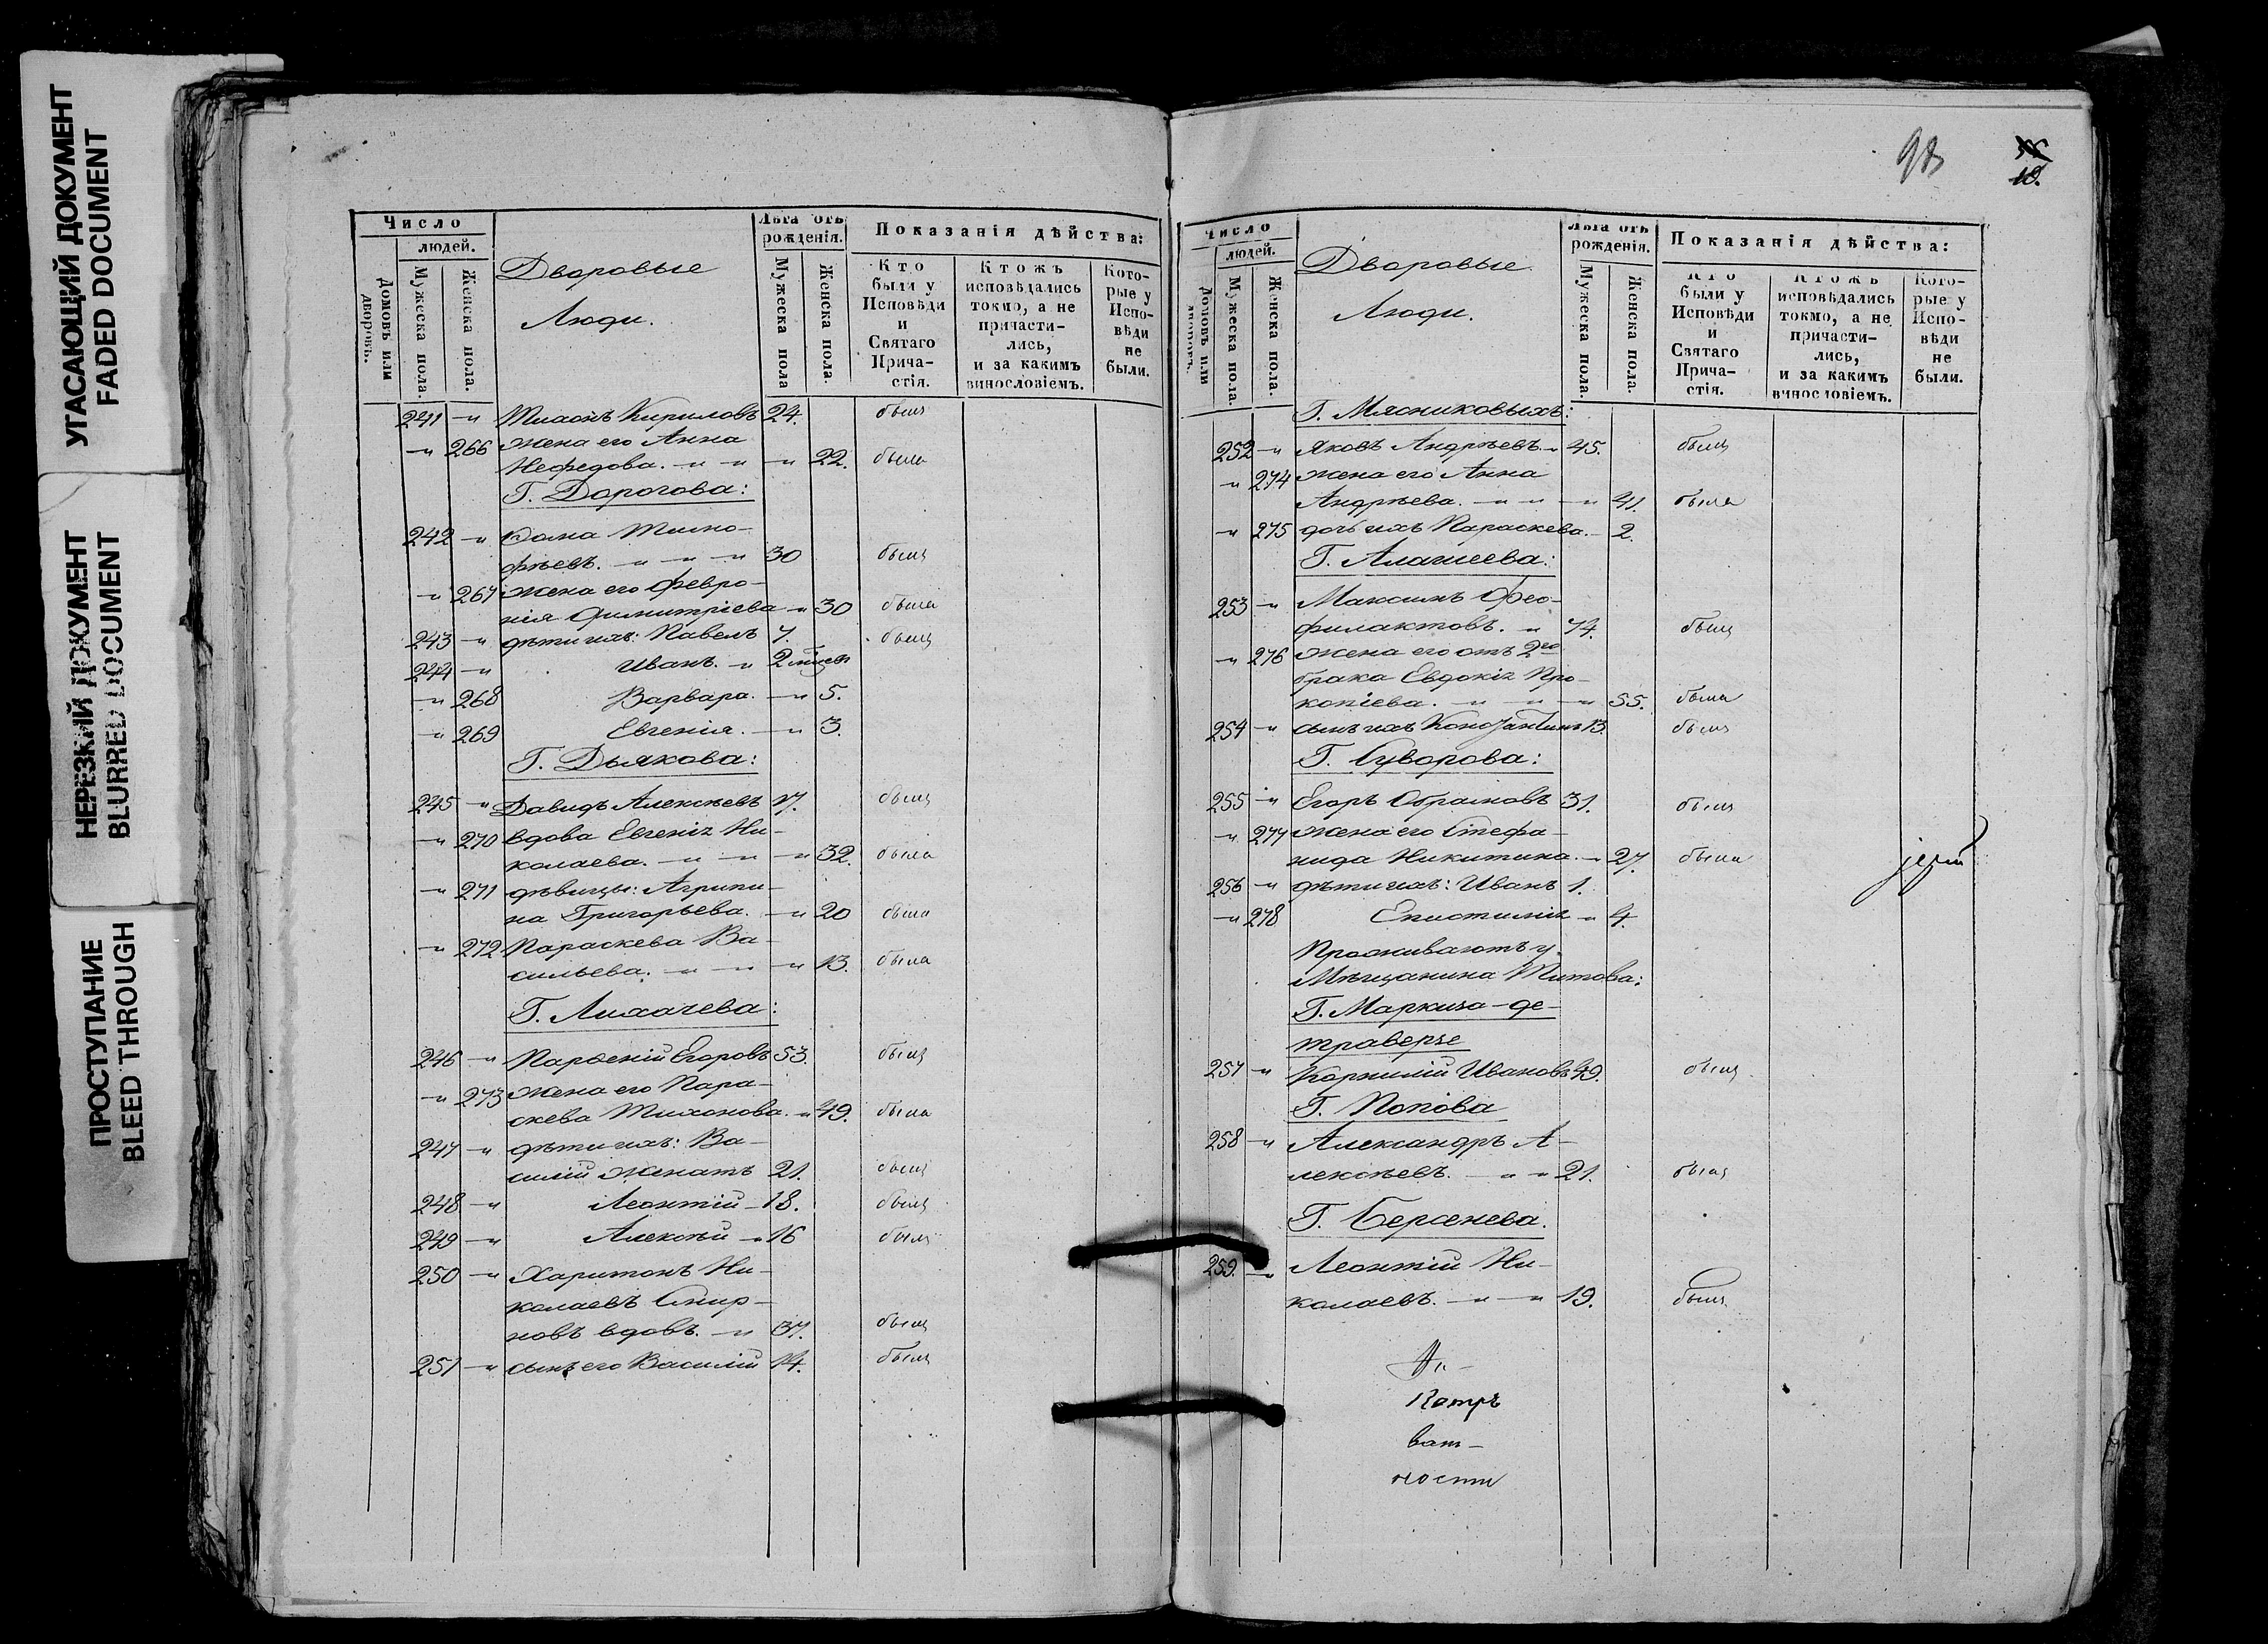 УГАСАЮЩИЙ ДОКУМЕНТ
FADED DOCUMENT
НЕРЕЗКИЙ ДОКУМЕНТ
BLURRED DOCUMENT
ПРОСТУПАНИЕ
BLEED THROUGH
Число
людей.
Домовъ или дворовъ.
Мужеска пола.
Женска пола.
Дворовые
Люди.
Лѣта отъ
рожденія.
Мужеска пола
Женска пола.
Показанія дѣйства:
Кто
были у
Исповѣди
и
Святаго
Прича-
стія.
Ктожъ
исповѣдались
токмо, а не
причасти-
лись,
и за какимъ
винословіемъ.
Кото-
рые у
Испо-
вѣди
не
были.
241 Кириловъ 24. былъ
266 жена его Анна
Нефедова. 22. была
Г. Дорогова:
242 Ѳома Тимо-
фѣевъ. 30 былъ
267 жена его Февро-
нія Димитріева 30 была
243 дѣти ихъ: Павелъ 7. былъ
244 Иванъ. 2
268 Варвара. 5.
269 Евгенія. 3.
Г. Дьякова:
245 Давидъ Алексѣевъ 17. былъ
270 вдова Евгенія Ни-
колаева. 32. была
271 дѣвицы: Агрипи-
на Григорьева. 20 была
272 Параскева Ва-
сильева. 13. была
Г. Лихачева:
246 Парѳеній Егоровъ 53. былъ
273 жена его Пара-
скева Тихонова. 49. была
247 дѣти ихъ: Ва-
силій женатъ 21. былъ
248 Леонтій 18. былъ
249 Алексѣй 16 былъ
250 Харитонъ Ни-
колаевъ Смир-
новъ вдовъ. 37. былъ
251 сынъ его Василій 14. былъ
98
10.
Число
людей.
Домовъ или дворовъ.
Мужеска пола.
Женска пола.
Дворовые
Люди.
Лѣта отъ
рожденія.
Мужеска пола
Женска пола.
Показанія дѣйства:
Кто
были у
Исповѣди
и
Святаго
Прича-
стія.
Ктожъ
исповѣдались
токмо, а не
причасти-
лись,
и за какимъ
винословіемъ.
Кото-
рые у
Испо-
вѣди
не
были.
Г. Мясниковыхъ:
252 Яковъ Андрѣевъ 45. былъ
274 жена его Анна
Андрѣева. 41. была
275 дочь ихъ Параскева. 2.
Г. Алашеева:
253 Максимъ Фео-
филактовъ. 74. былъ
276 жена его отъ 2го
брака Евдокія Про-
копіева. 55. была
254 сынъ ихъ Константинъ 13. былъ
Г. Суворова:
255 Егоръ Абрамовъ 31. былъ
277 жена его Стефа-
нида Никитина. 27. была
256 дѣти ихъ: Иванъ 1.
278 Епистимія 4.
Проживаютъ у
Мѣщанина Титова:
Г. Маркиза-де-
траверзе
257 Корнилій Ивановъ 49. былъ
Г. Попова
258 Александръ А-
лексѣевъ. 21. былъ
Г. Берсенева.
259. Леонтій Ни-
колаевъ. 19. былъ